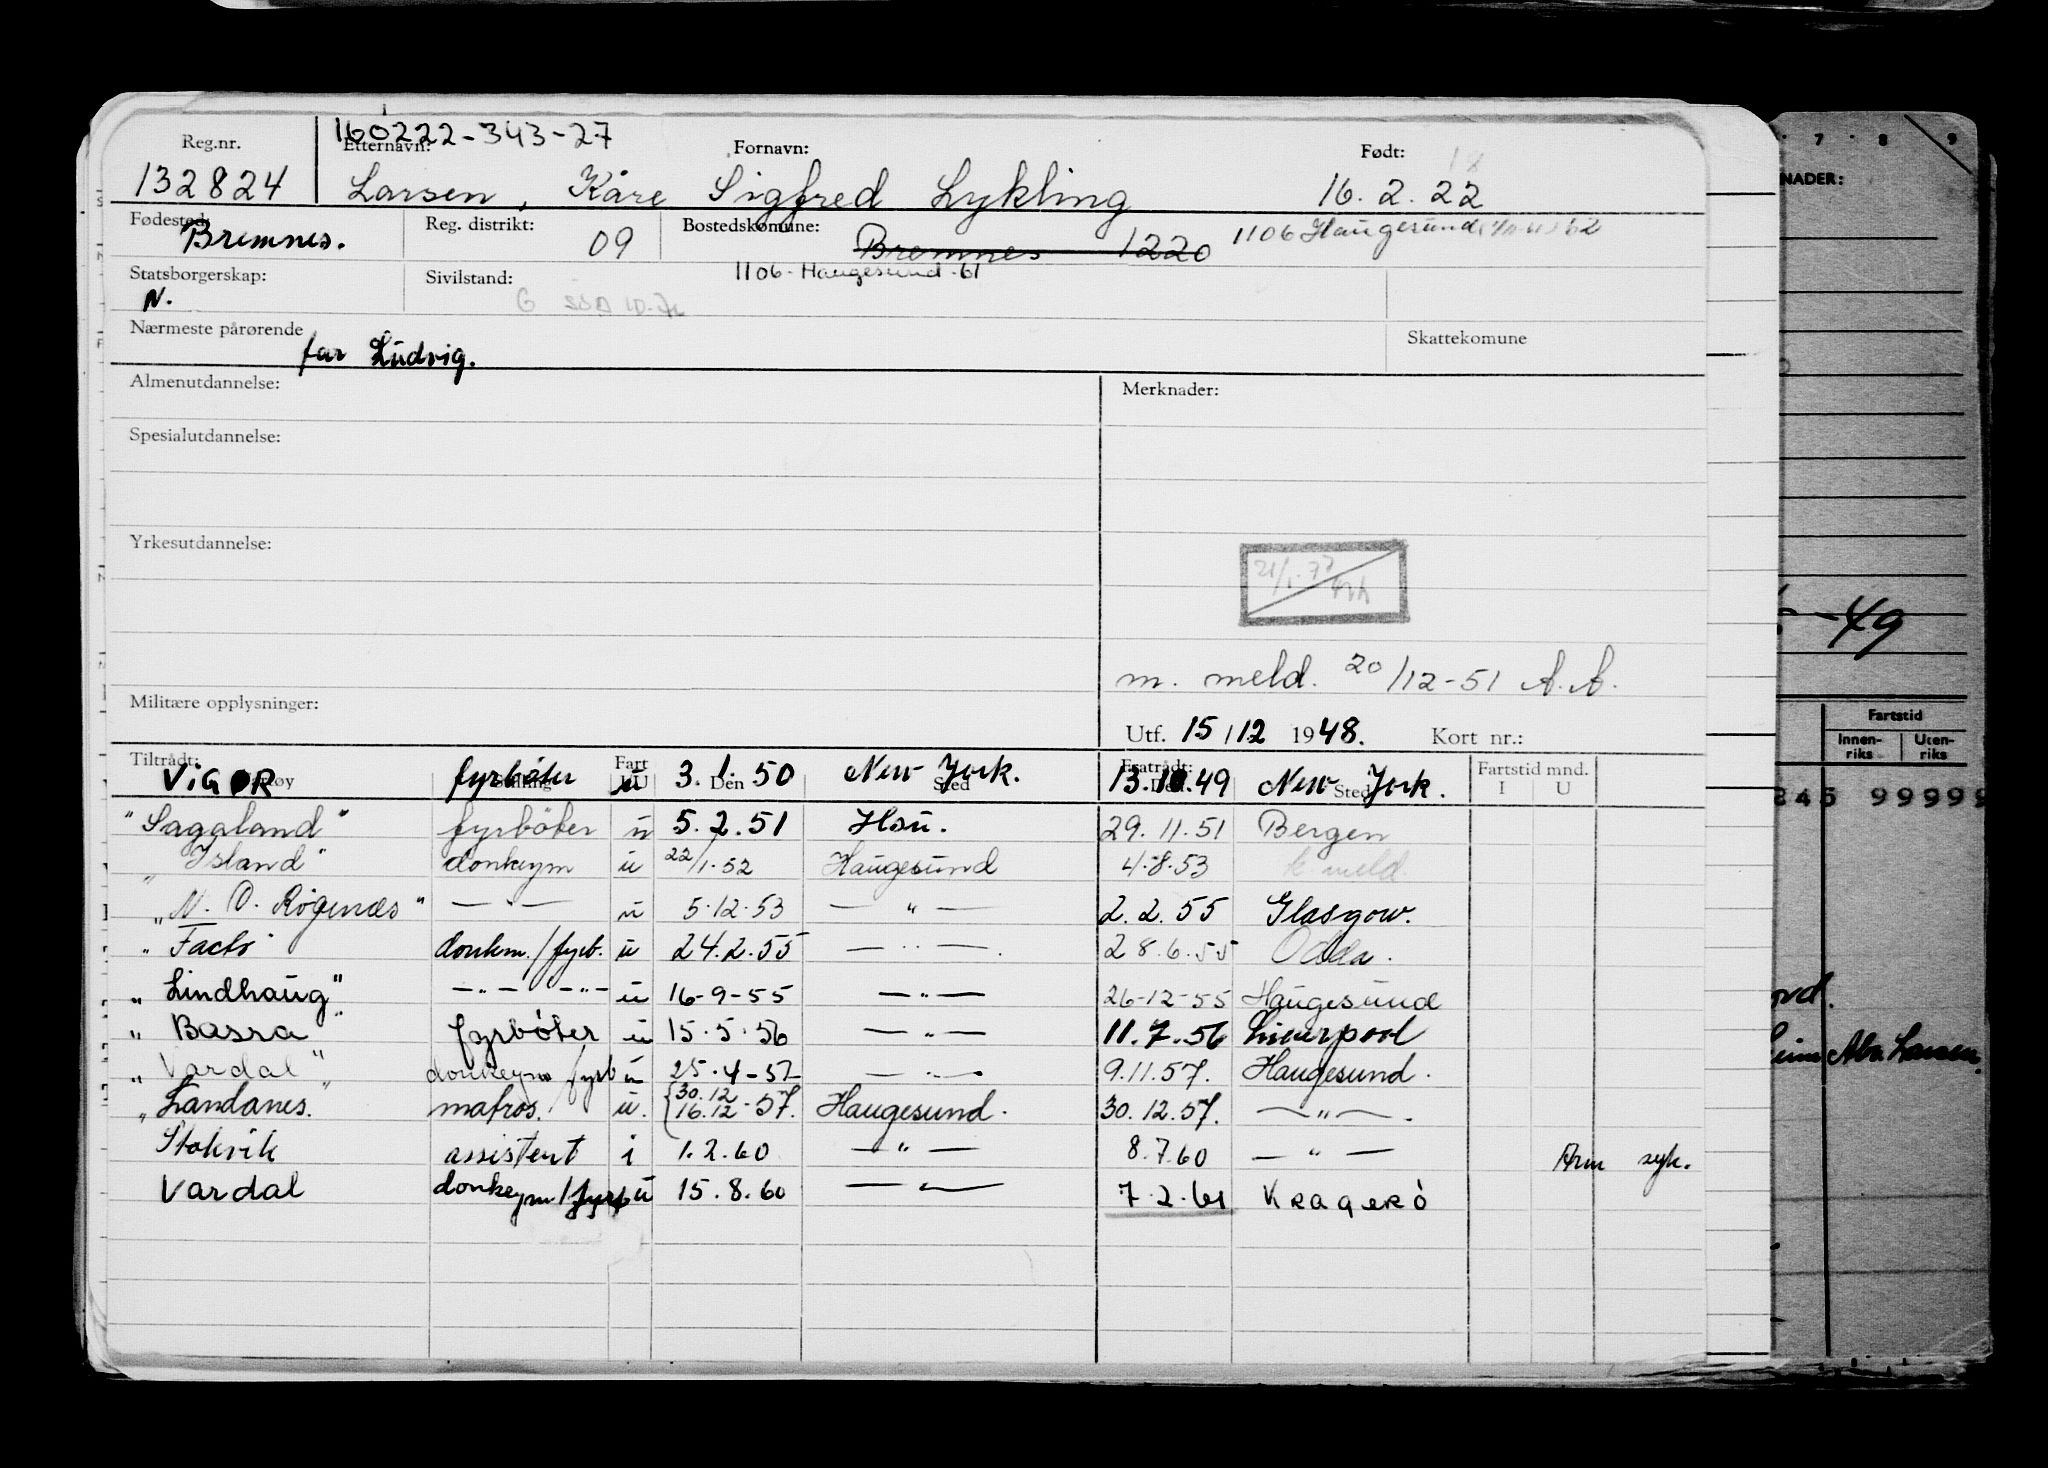 160222-343-27
Reg.nr. Etternavn: Fornavn: Født:
132824 Larsen, Kåre Sigfred Lykling 16.2.22
Fødested: Bremnes. Reg. distrikt: 09 Bostedskomune: Bremnes 1220 1106 Haugesund
1106-Haugesund-61
Statsborgerskap: N. Sivilstand: G
Nærmeste pårørende far Ludvig. Skattekomune
Almenutdannelse: Merknader:
Spesialutdannelse:
Yrkesutdannelse:
m. meld. 20/12-51 A.A.
Militære opplysninger:
Utf. 15/12 1948. Kort nr.:
Tiltrådt: Stilling Fart Den Sted Fratrådt: Sted Fartstid mnd. I U
ViGOR fyrbøter u 3.1.50 New York. 13.10.49 New York.
"Sagaland" fyrbøter u 5.2.51 Hsu. 29.11.51 Bergen
"Island" donkeym u 22/1.52 Haugesund 4.8.53 k. meld.
"N. O. Røgenæs" — " — u 5.12.53 — " — 2.2.55 Glasgow.
"Facto" donkm./fyrb. u 24.2.55 — " — 28.6.55 Odda.
"Lindhaug" — " — — " — u 16-9-55 — " — 26-12-55 Haugesund
"Basra" fyrbøter u 15.5.56 — " — 11.7.56 Liverpool
"Vardal" donkeym/fyrb u 25.4-57 — " — 9.11.57. Haugesund.
"Landanes." matros. u. {30.12 16.12-57. Haugesund. 30.12.57. — " —.
Stokvik assistent i 1.2.60 — " — 8.7.60 — " — Arm syk.
Vardal donkeym/fyrb u 15.8.60 — " — 7.2.61 Kragerö
7 8 9
NADER:
-49
Fartstid
Innen-riks Uten-riks
845 99999